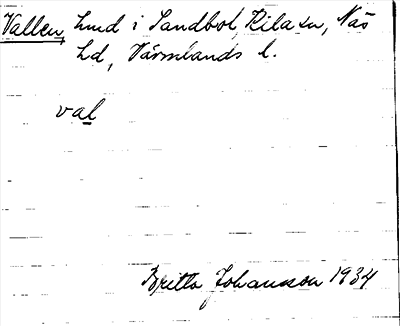 Vallen, hmd i Sandbol, Kila sn, Näs
hd, Värmlands l.
val
Britta Johansson 1934